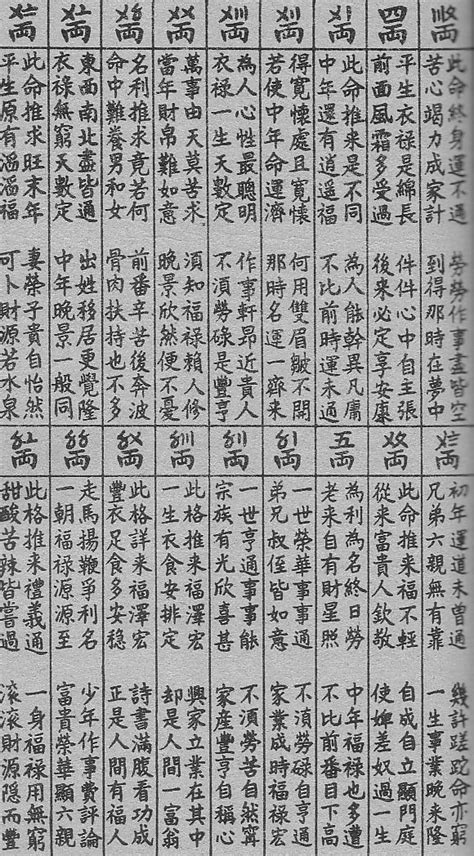 〣〩両
此命終身運不通　勞勞作事盡皆空
苦心竭力成家計　到得那時在夢中
四両
平生衣祿是綿長　件件心中自主張
前面風霜多受過　後来必定享安康
〤〡両
此命推来是不同　為人能幹異凡庸
中年還有逍遥福　不比前時運未通
〤〢両
得寬懷處且寬懷　何用雙眉皺不開
若使中年命運濟　那時名運一齊来
〤〣両
為人心性最聰明　作事軒昂近貴人
衣祿一生天數定　不須勞碌是豐亨
〤〤両
萬事由天莫苦求　須知福祿賴人修
當年財帛難如意　晚景欣然便不憂
〤〥両
名利推求竟若何　前番辛苦後奔波
命中難養男和女　骨肉扶持也不多
〤〦両
東西南北盡皆通　出姓移居更覺隆
衣祿無窮天數定　中年晚景一般同
〤〧両
此命推求旺末年　妻榮子貴自怡然
平生源有滔滔福　可卜財源若水泉
〤〨両
初年運道未曾通　幾許蹉跎命亦窮
兄弟六親無有靠　一生事業晚来隆
〤〩両
此命推来福不輕　自成自立顯門庭
從来富貴人欽敬　使婢差奴過一生
五両
為利為名終日勞　中年福祿也多遭
老来自有財星照　不比前番目下高
〥〡両
一世榮華事事通　不須勞碌自亨通
弟兄叔侄皆如意　家業成時福祿宏
〥〢両
一世亨通事事能　不須勞苦自然寧
宗族有光欣喜甚　家產豐亨自稱心
〥〣両
此格推来福澤宏　興家立業在其中
一生衣食安排定　却是人間一富翁
〥〤両
此格詳来福澤宏　詩書滿腹看功成
豐衣足食多安穩　正是人間有福人
〥〥両
走馬揚鞭爭利名　少年作事費評論
一朝福祿源源至　富貴榮華顯六親
〥〦両
此格推来禮義通　一身福祿用無窮
甜酸苦辣皆嘗過　滾滾財源隱而豐